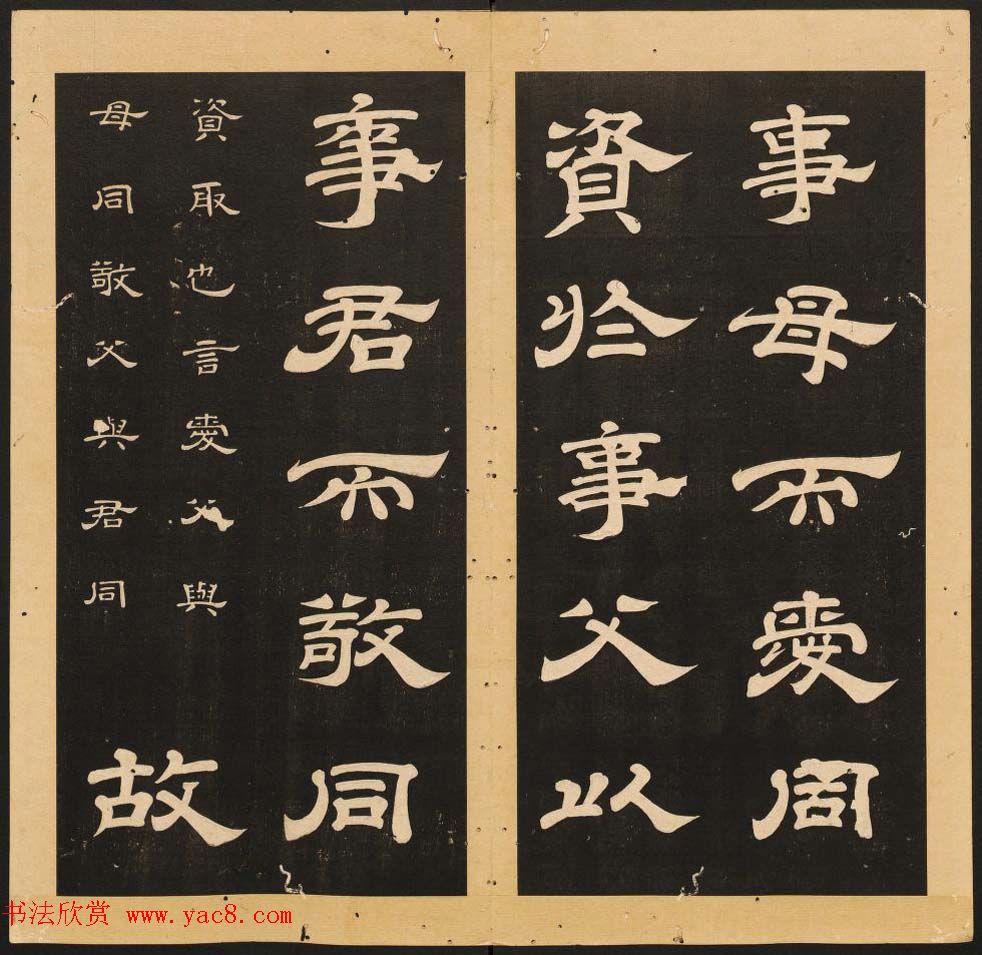 事母而愛同
資於事父以
事君而敬同
資取也言愛父與
母同敬父與君同
故
书法欣赏 www.yac8.com